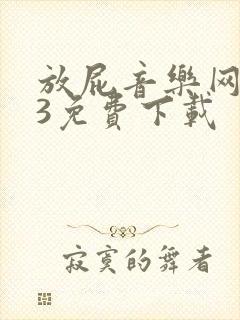 放屁音樂网
3免費下載
寂寞的舞者